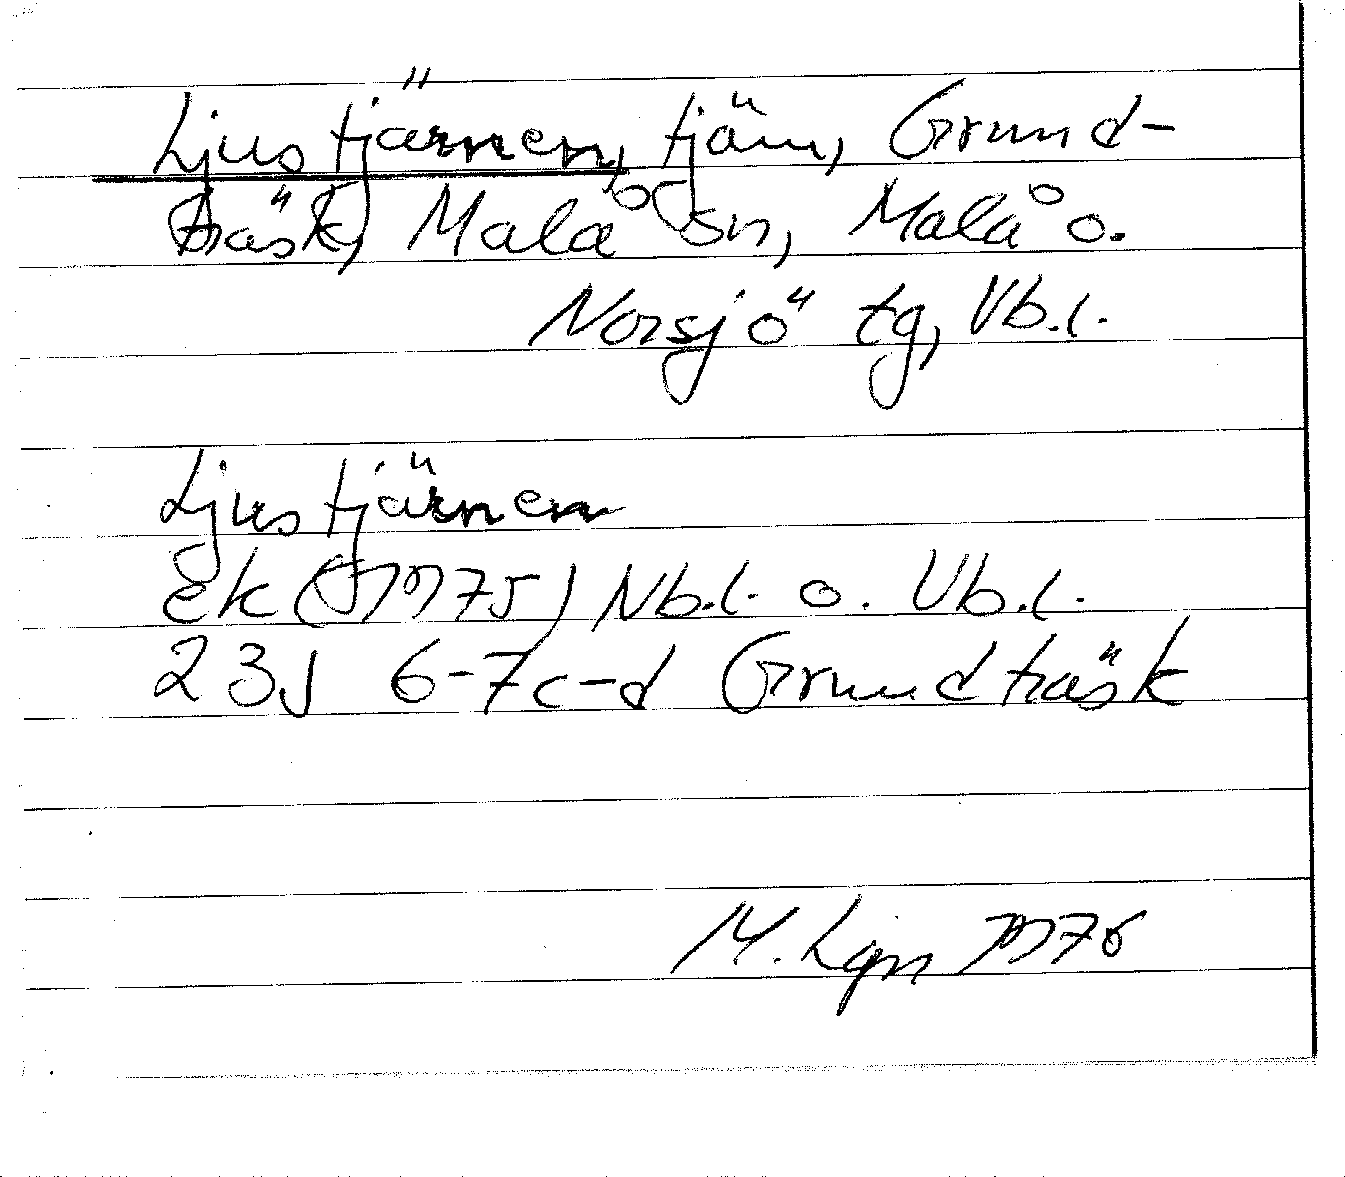 Ljustjärnen, tjärn, Grund-
träsk, Malå sn, Malå o.
Norsjö tg, Vb.l.
Ljustjärnen
ek (1975) Nb.l. o. Vb.l.
23J 6-7c-d Grundträsk
M. Lgn 1976